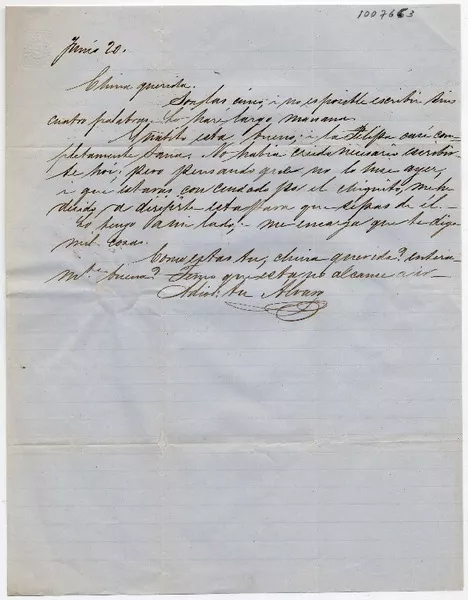 1007663
Junio 20.
China querida.
Son las cinco, i no es posible escribir sino
cuatro palabras. Lo haré largo, mañana.
Anibito está bueno, i la Felipe casi com-
pletamente buena. No habia creido necesario escribir-
te hoi; pero pensando que no lo hice ayer,
i que estarás con cuidado por el chiquito, me he
decidido a dirijirte esta para que sepas de él.
Lo tengo a mi lado: me encarga que te diga
mil cosas.
Como estas tu, china querida? entera
mte buena? Temo que esta no alcance a ir
Adios. tu Alvaro